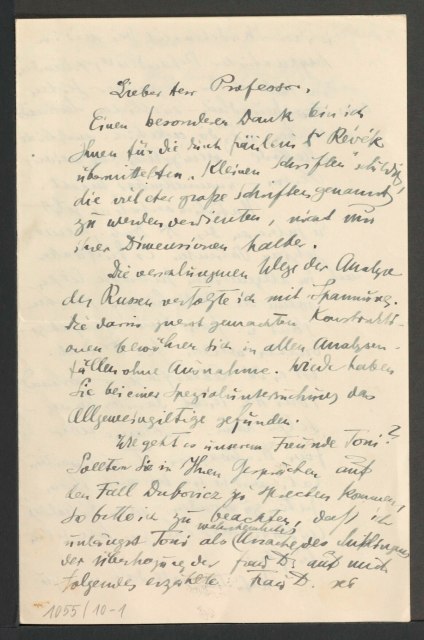 Lieber Herr Professor,
Einen besonderen Dank bin ich
Ihnen für die durch Fräulein Dr Révész
übermittelten „Kleinen Schriften“ schuldig,
die viel eher große Schriften genannt
zu werden verdienten, nicht nur
ihrer Dimensionen halber.
Die verschlungenen Wege der Analyse
des Russen verfolgte ich mit Spannung.
Die darin zuerst gemachten Konstrukti-
onen bewähren sich in allen Analysen-
fällen ohne Ausnahme. Wieder haben
Sie bei einer Spezialuntersuchung das
Allgemeingiltige gefunden.
Wie geht es unserem Freunde Toni?
Sollten Sie in Ihren Gesprächen auf
den Fall Dubovicz zu sprechen kommen,
so bitte ich zu beachten, daß ich
unlängst Toni als wahrscheinliche Ursache des
der Übertragung der Frau D. auf mich
folgendes erzählte: Frau D.
1055/10-1